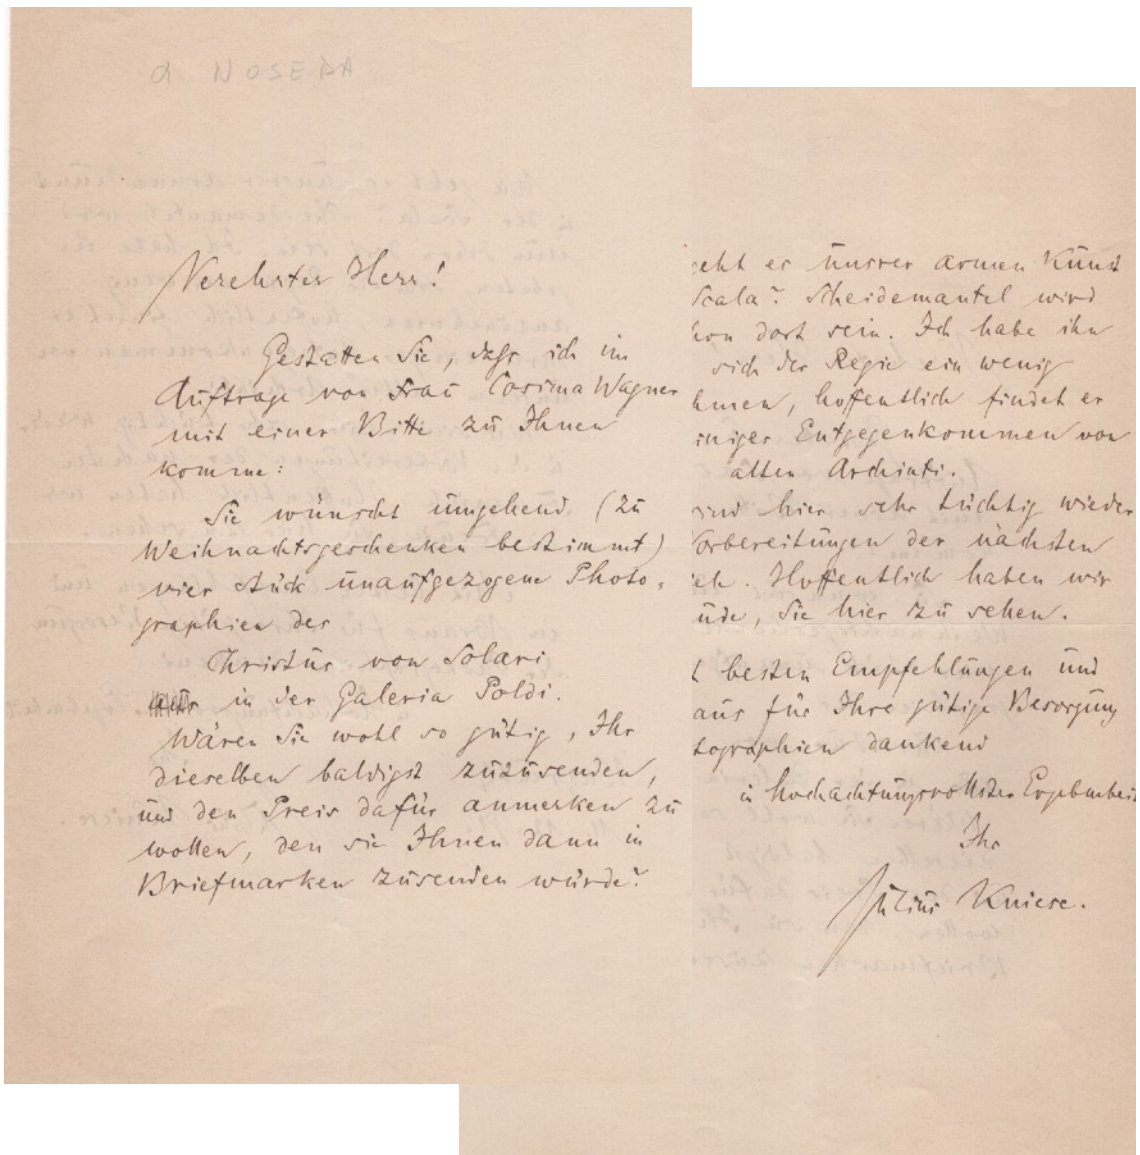 a NOSEDA
Verehrter Herr!
Gestatten Sie, dass ich im
Auftrage von Frau Cosima Wagner
mit einer Bitte zu Ihnen
komme:
Sie wünscht umgehend (zu
Weihnachtsgeschenken bestimmt)
vier Stück unaufgezogene Photo-
graphien des
Christus von Solari
in der Galeria Poldi.
Wären Sie wohl so gütig, Ihr
dieselben baldigst zuzusenden,
und den Preis dafür anmerken zu
wollen, den sie Ihnen dann in
Briefmarken zusenden würde?
geht es unsrer armen Kunst
Scala? Scheidemantel wird
hon dort sein. Ich habe ihn
sich der Regie ein wenig
hmen, hoffentlich findet er
iniges Entgegenkommen von
alten Archinti.
sind hier sehr tüchtig wieder
Vorbereitungen der nächsten
ele. Hoffentlich haben wir
ude, Sie hier zu sehen.
t besten Empfehlungen und
aus für Ihre gütige Besorgung
tographien dankend
in hochachtungsvollster Ergebenheit
Ihr
Julius Kniese.